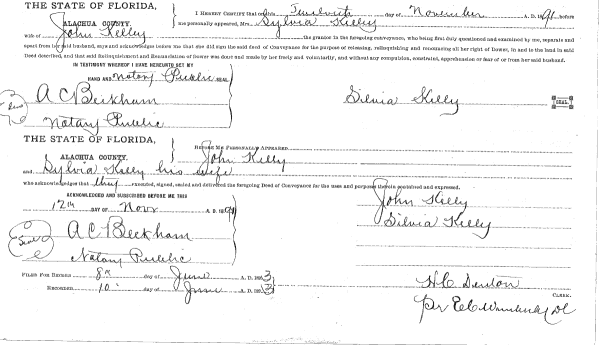 THE STATE OF FLORIDA,
ALACHUA COUNTY.
I HEREBY CERTIFY that on this Twelveth day of November A. D. 1891 before
me personally appeared, Mrs. Sylvia Kelly
wife of John Kelly the grantor in the foregoing conveyance, who being first duly questioned and examined by me, separate and
apart from her said husband, says and acknowledges before me that she did sign the said deed of Conveyance for the purpose of releasing, relinquishing and renouncing all her right of Dower, in and to the land in said
Deed described, and that said Relinquishment and Renunciation of Dower was done and made by her freely and voluntarily, and without any compulsion, constraint, apprehension or fear of or from her said husband.
IN TESTIMONY WHEREOF I HAVE HEREUNTO SET MY
HAND AND Notary Public SEAL
A C Beckham
Silvia Kelly SEAL.
Seal
Notary Public
THE STATE OF FLORIDA,
ALACHUA COUNTY.
BEFORE ME PERSONALLY APPEARED
John Kelly
and Sylvia Kelly his wife
who acknowledges that they executed, signed, sealed and delivered the foregoing Deed of Conveyance for the uses and purposes therein contained and expressed.
ACKNOWLEDGED AND SUBSCRIBED BEFORE ME THIS
12th DAY OF Novr A. D. 1891
John Kelly
Silvia Kelly
Seal
A C Beckham
Notary Public
FILED FOR RECORD 8th day of June A. D. 1893
RECORDED 10 day of June A. D. 1893
H C Denton
CLERK.
Pr E C DC